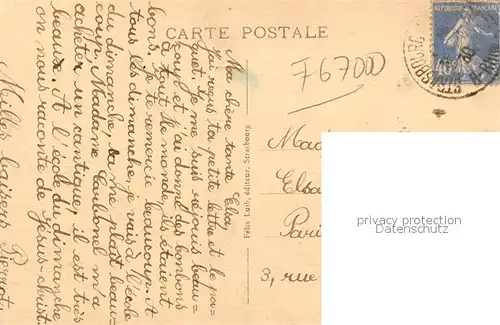 CARTE POSTALE
RÉPUBLIQUE FRANÇAISE
F67000
Ma chère tante Elsa
j'ai reçu ta petite lettre et le pa-
quet. Je me suis réjouis beau-
coup et j'ai donné des bonbons
à tout le monde, ils étaient
bons. Je te remercie beaucoup. A
tous les dimanche, je vais à l'école
du dimanche, ça me plaît beau-
coup. Madame m'a
acheter un cantique, il est très
beau. A l'école du dimanche
on nous raconte de Jésus-Christ.
Milles baisers Pierrot.
Félix Luib, éditeur, Strasbourg
Mad
Elsa
Pari
3, rue
privacy protection
Datenschutz